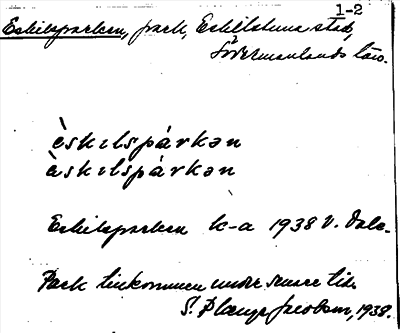 1-2
Eskilsparken, park, Eskilstuna stad,
Södermanlands län.
èskılspárkən
èskılspárkən
Eskilsparken k-a 1938 V. Dale.
Park tillkommen under senare tid.
S. Plange Jacobson, 1938.